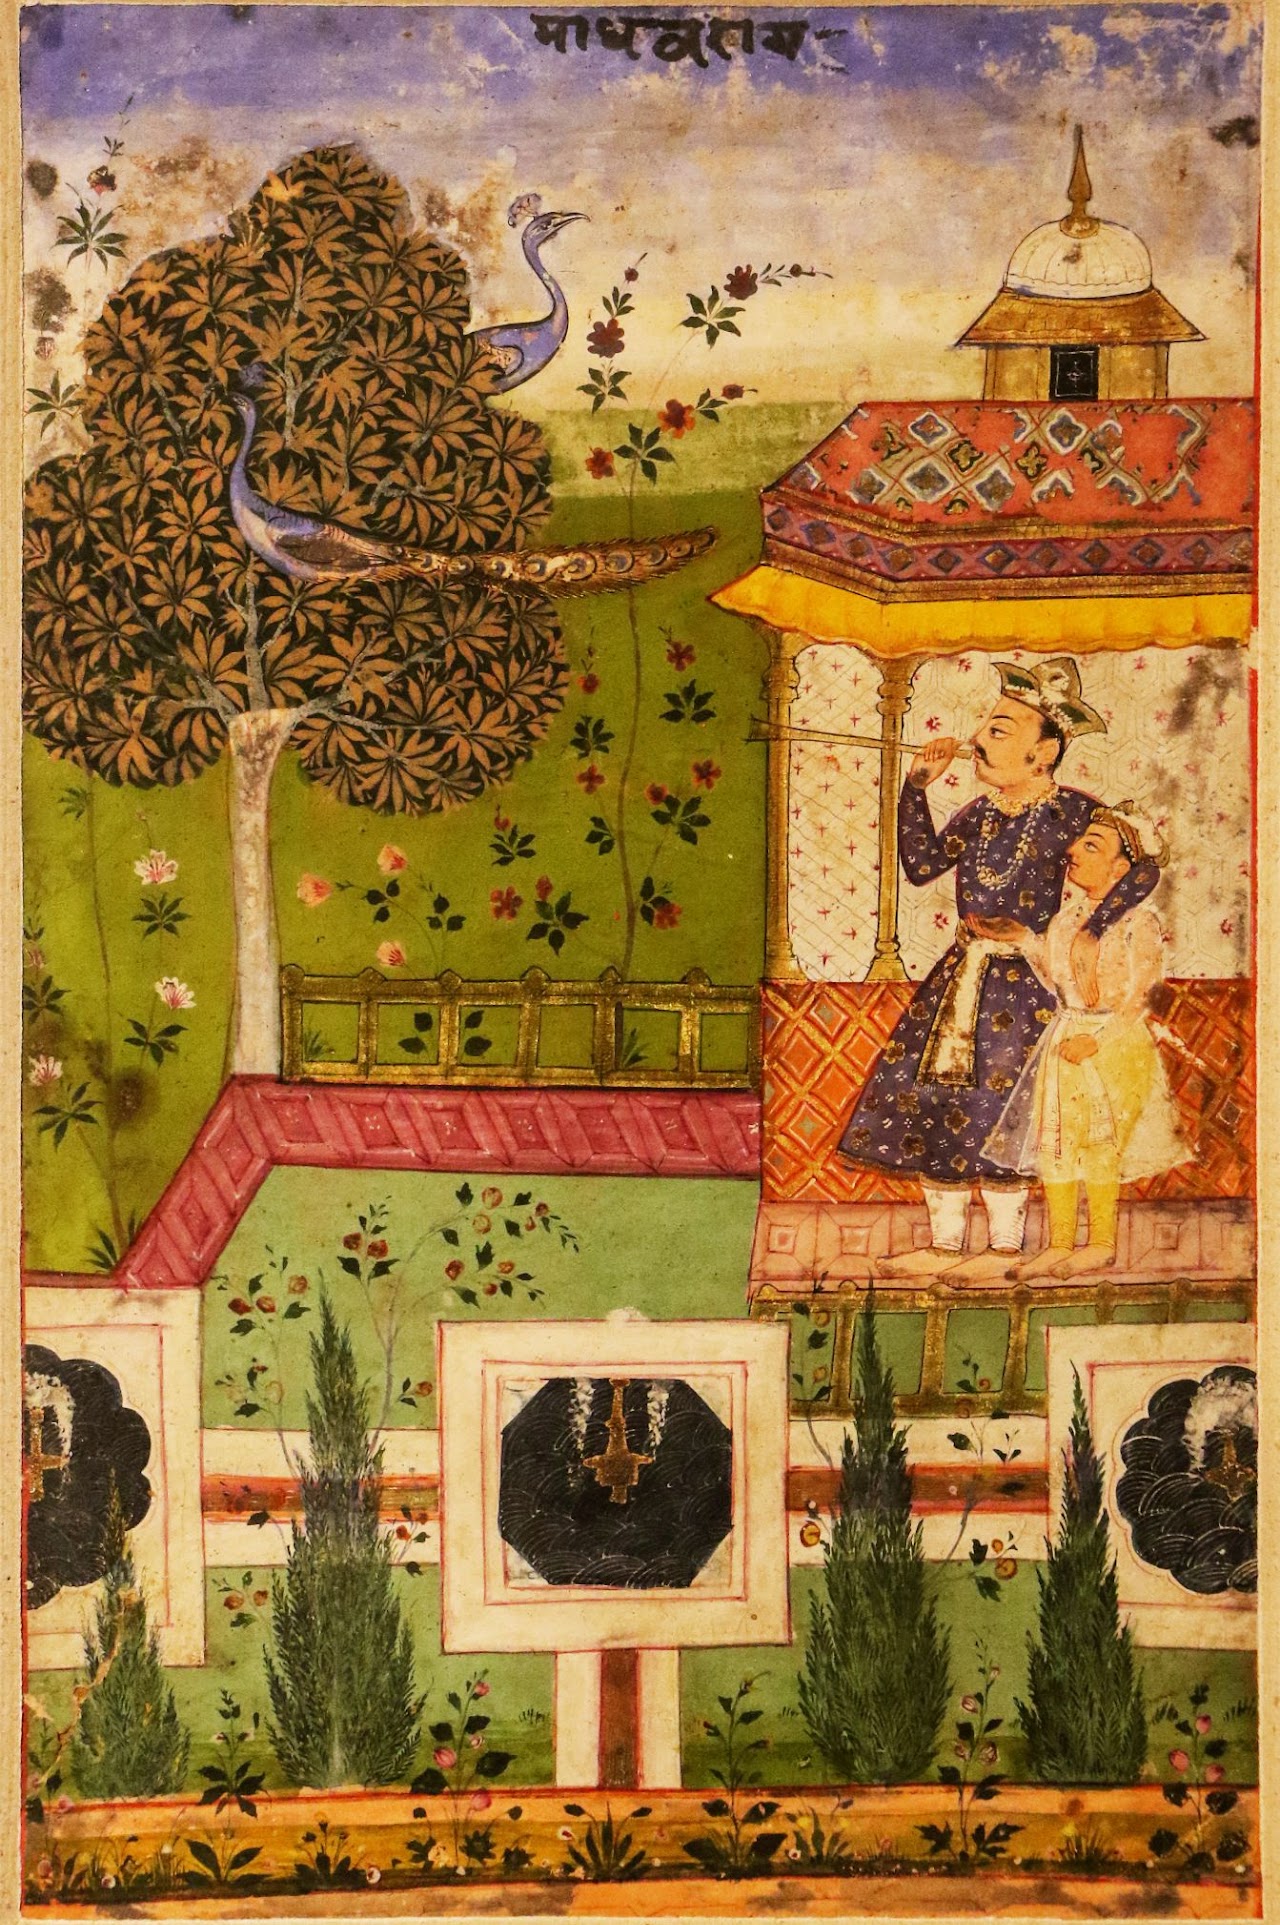 माधवराय